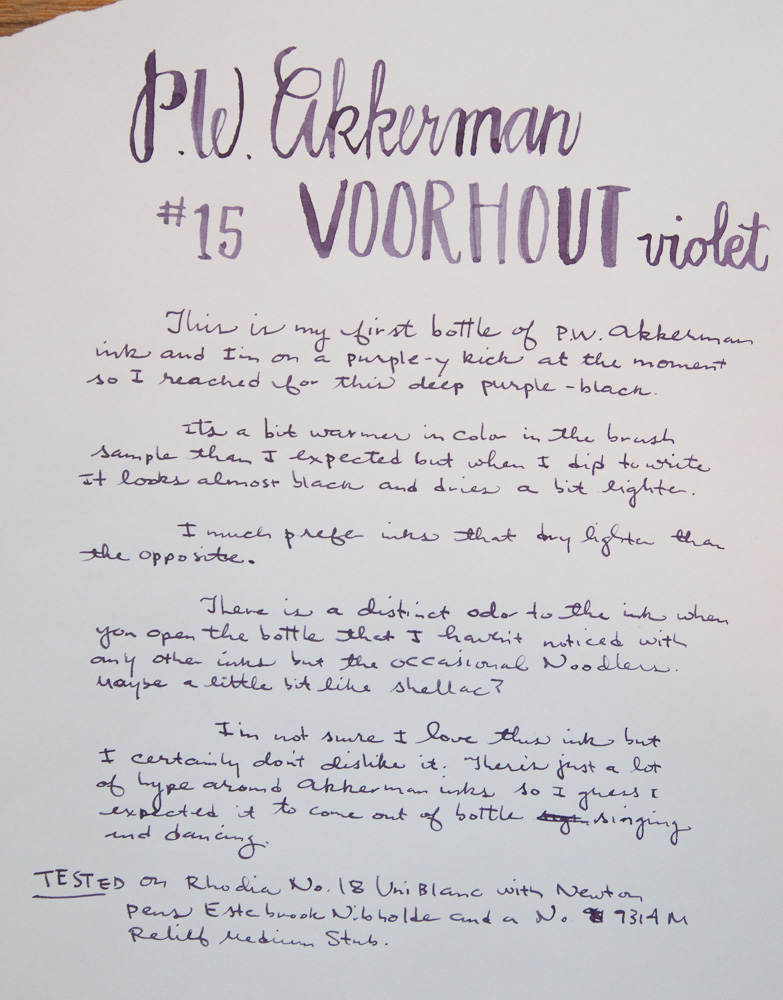 P.W. Akkerman
#15 VOORHOUT violet
This is my first bottle of P.W. Akkerman
ink and I'm on a purple-y kick at the moment
so I reached for this deep purple-black.
Its a bit warmer in color in the brush
sample than I expected but when I dip to write
It looks almost black and dries a bit lighter.
I much prefer inks that dry lighter than
the opposite.
There is a distinct odor to the ink when
you open the bottle that I haven't noticed with
any other inks but the occasional Noodlers.
Maybe a little bit like shellac?
I'm not sure I love this ink but
I certainly don't dislike it. There's just a lot
of hype around Akkerman inks so I guess I
expected it to come out of bottle singing
and dancing.
TESTED on Rhodia No. 18 Uni Blanc with Newton
Pens Esterbrook Nibholder and a No. 9314 M
Relief Medium Stub.